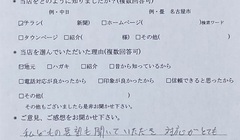 ●当店をどのように知りましたか?(複数回答可)
例・中日 例・畳 名古屋市
□チラシ( 新聞) □ホームページ( )検索ワード
□タウンページ □紹介( 様) □その他( )
●当店を選んでいただいた理由(複数回答可)
☑地元 □ハガキ □紹介 □昔から知っているから
□電話対応が良かったから □印象が良かったから □信頼できると思ったから
□その他(
●ご意見、ご感想をお聞かせ下さい。
私どもの希望も聞いていただき 対応がとても